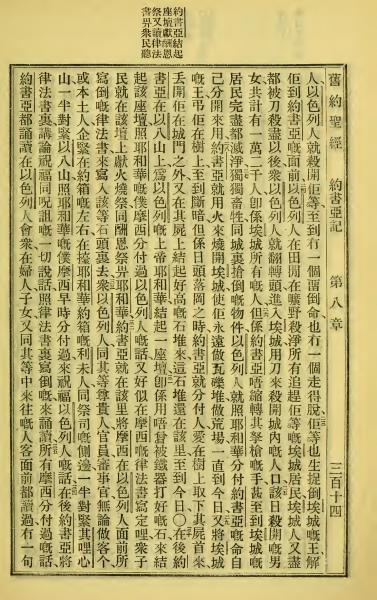 舊約聖經 約書亞記 第八章 三百十四
約書亞結起
座壇獻酬恩
祭又讀律法
書畀衆民聽
人以色列人就殺開佢等至到有一個畱倒命也有一個走得脫佢等也生捉倒埃城嘅王解
佢到約書亞嘅面前以色列人在田閒在曠野殺淨所有追趕佢等嘅埃城居民埃人又盡
都被刀殺盡以後衆以色列人就翻轉頭進入埃城用刀來殺開城內嘅人口該日殺開嘅男
女共計有一萬二千人卽係埃城所有嘅人但係約書亞唔縮轉其拏槍嘅手甚至到埃城嘅
居民完盡都滅淨獨獨畜牲同城裏搶倒嘅物件以色列人就照耶和華分付約書亞嘅命自
己分開來用約書亞就用火來燒開埃城使佢永遠做瓦礫堆做荒場一直到今日又將埃城
嘅王弔佢在樹上至到斷暗但係日頭落岡之時約書亞就分付人愛在樹上取下其屍首來
丟開佢在城門之外又在其屍上結起好高嘅石堆來這石堆還在該里至到今日〇在後約
書亞在以八山上爲以色列嘅上帝耶和華結一座壇卽係用唔曾被鐵器打好嘅石來結
起該座壇照耶和華嘅僕摩西分付過以色列人嘅話又好似在摩西嘅律法書寫定哩衆子
民就在該壇上獻火燒祭同酬恩祭畀耶和華約書亞就在該里將摩西在以色列人面前所
寫倒嘅律法書來寫入該等石頭裏去衆以色列人同其等尊貴人官員審事官無論做客个
或本土人企緊在約箱嘅左右在擡耶和華約箱嘅利未人同祭司嘅側邊一半對緊其哩心
山一半對緊以八山照耶和華嘅僕摩西早時分付過來祝福以色列人嘅話在後約書亞將
律法書裏講論祝福同呪詛嘅一切說話照律法書裏寫倒嘅來誦讀所有摩西分付過嘅話
約書亞都誦讀在以色列人會衆在婦人子女又同其等中來往嘅人客面前都讀過有一句